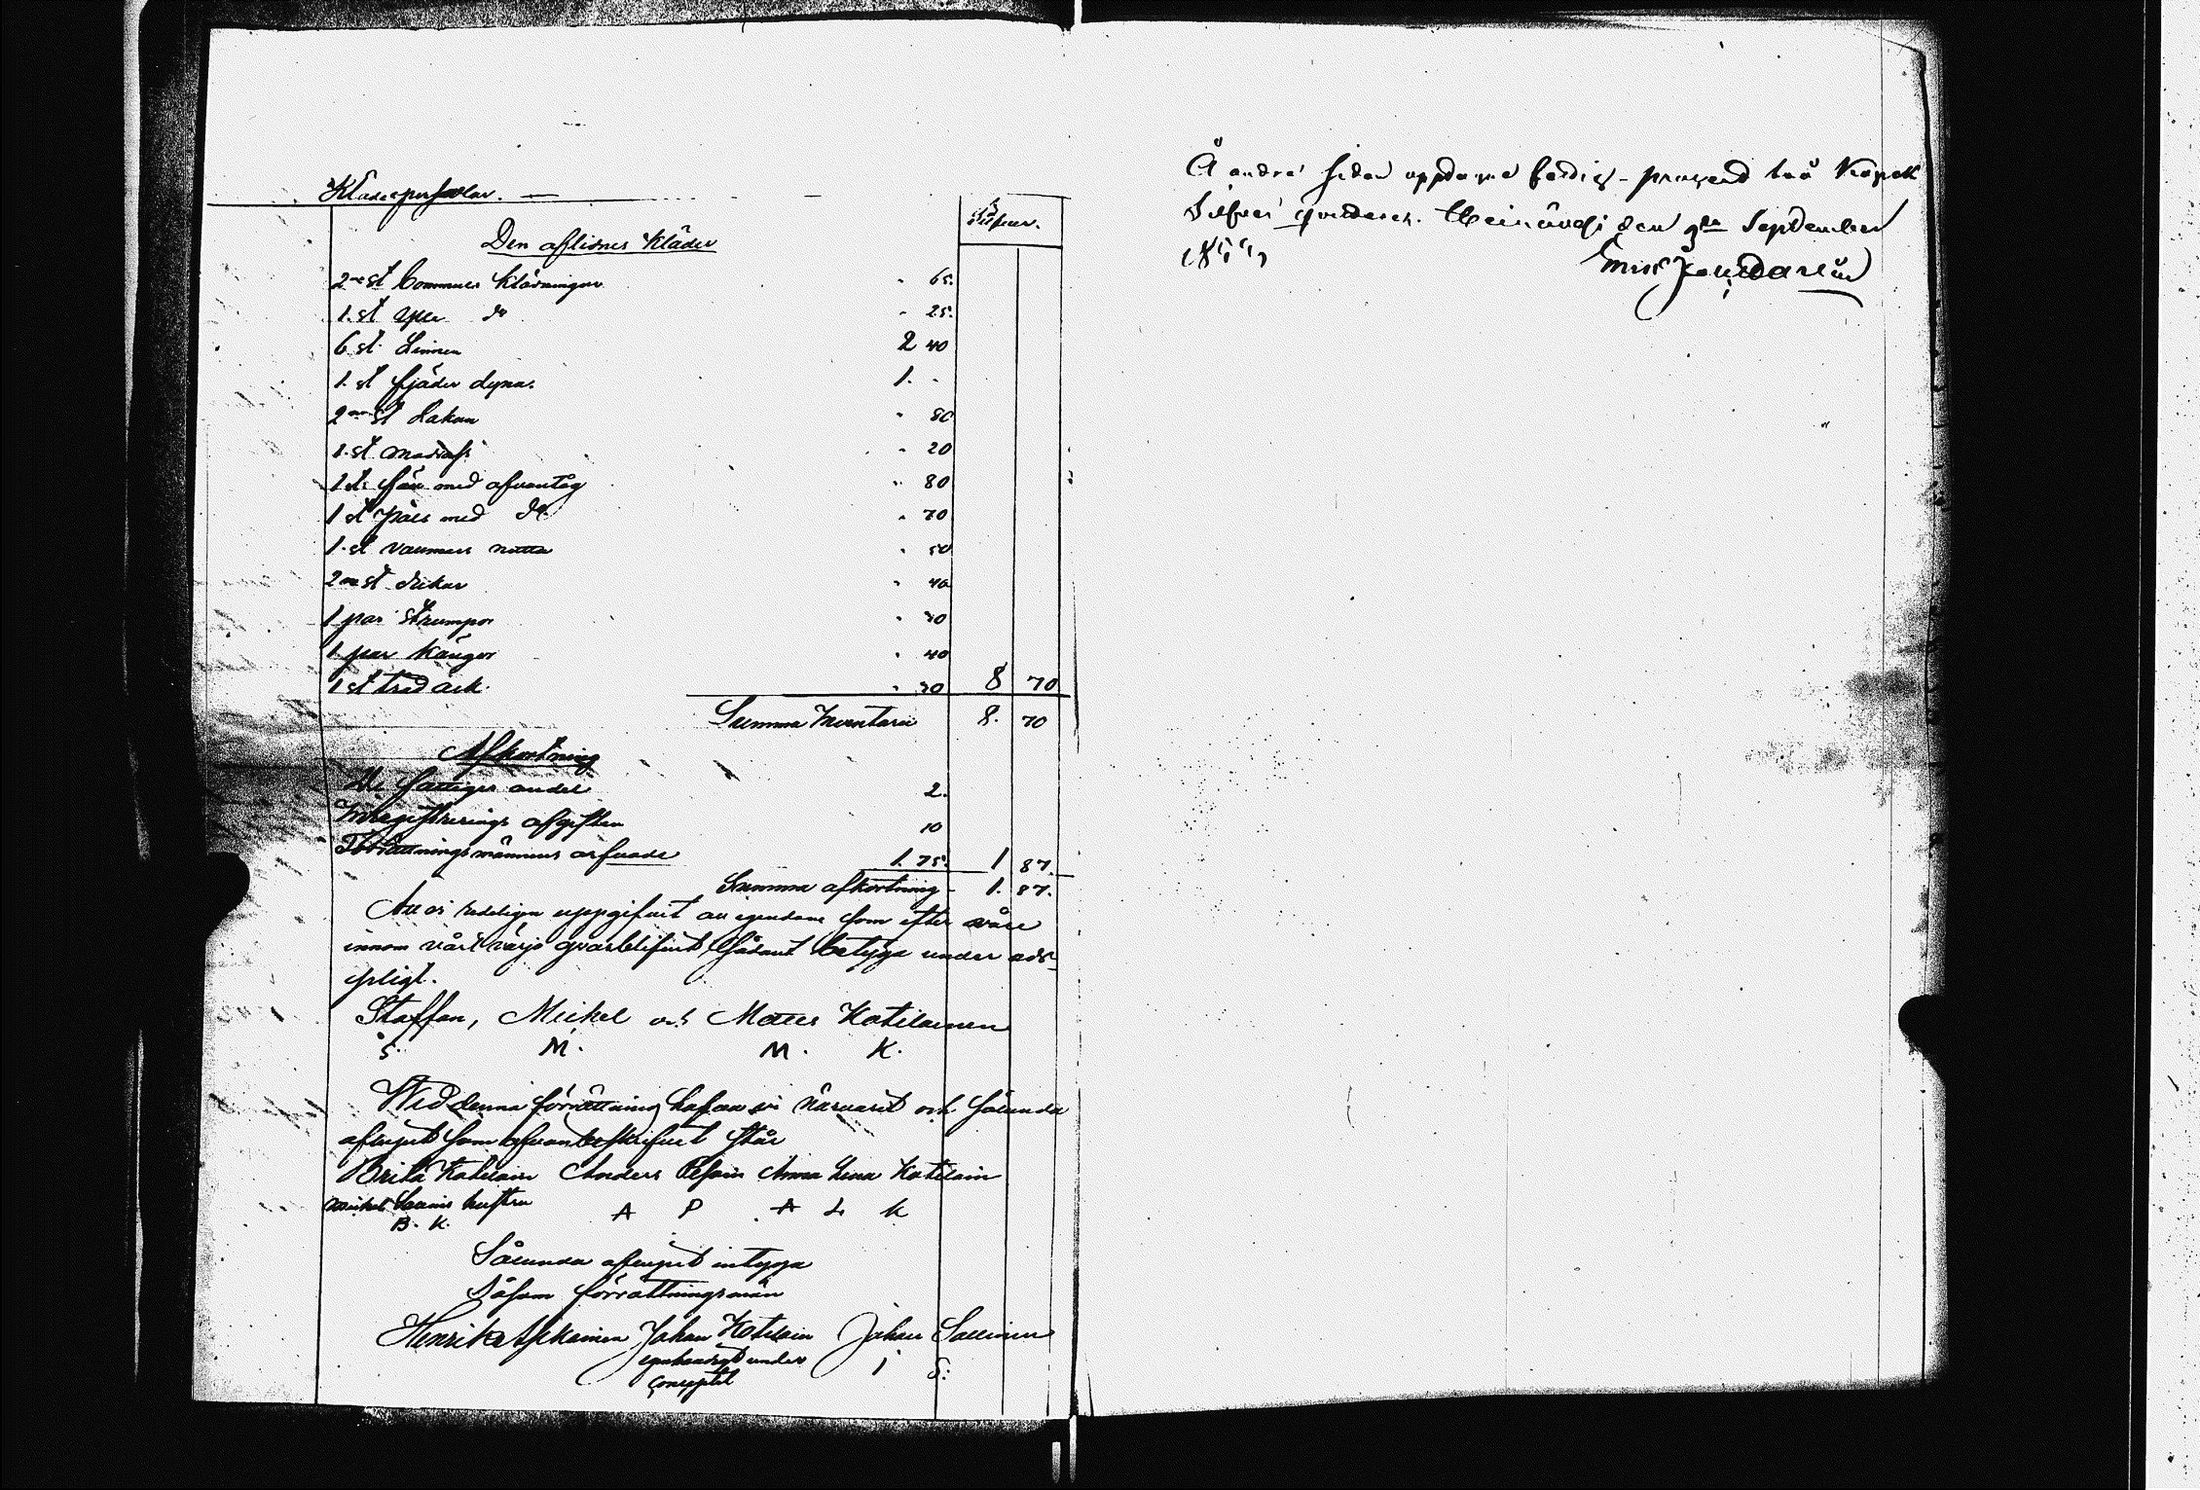 Klädespersedlar. —
Silfver.
Den aflidnes Kläder
2ne st Commers Klädningar - 65.
1. st ylle do - 25.
6 st. Linnen 2 40
1. st fjäder dyna. 1. -
2ne st Lakan - 80
1. st madrass - 20
1 st. fäll med afvantåg - 80
1 st päls med do. - 70
1. st vallmars - 50
2ne st dukar - 40
1 par strumpor - 30
1. par Kängor - 40
1 st träd ask. - 30 8 70
Summa Inventarii 8. 70
Afkortning
De fattiges andel 2.
Inregistrerings afgiften 10
Förrättningsmännens arfvode 1. 75. 1 87.
Summa afkortning - 1. 87.
Att vi redeligen uppgifvit all egendom som efter
innom vårt värjo qvarblifvit, sådant betyga under ed-
pligt.
Staffan, Mickel och Matts Kotilainen
S. M. M. K.
Wid denna förrättning hafva vi närvarit och sålunda
aflupit som ofvanbeskrifvit står
Brita Kotilain Anders Anna Lena Kotilain
Mickel hustru
B. K. A P A L K
Sålunda aflupit intyga
Såsom förrättningsmän
Henrik Johan Kotilain Johan Sallinen
egenhändigt under J S:
conceptet
Å andra sidan uppdagne fattig-procent två Kopek
Silfver qvitteras. Heinävesi den 9de September